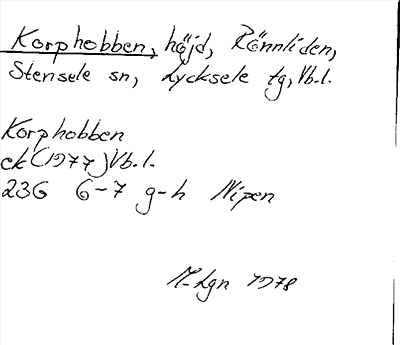 Korphobben, höjd, Rönnliden,
Stensele sn, Lycksele tg, Vb.l.
Korphobben
ek (1977) Vb.l.
23G 6-7 g-h Nipen
M-Lgn 1978